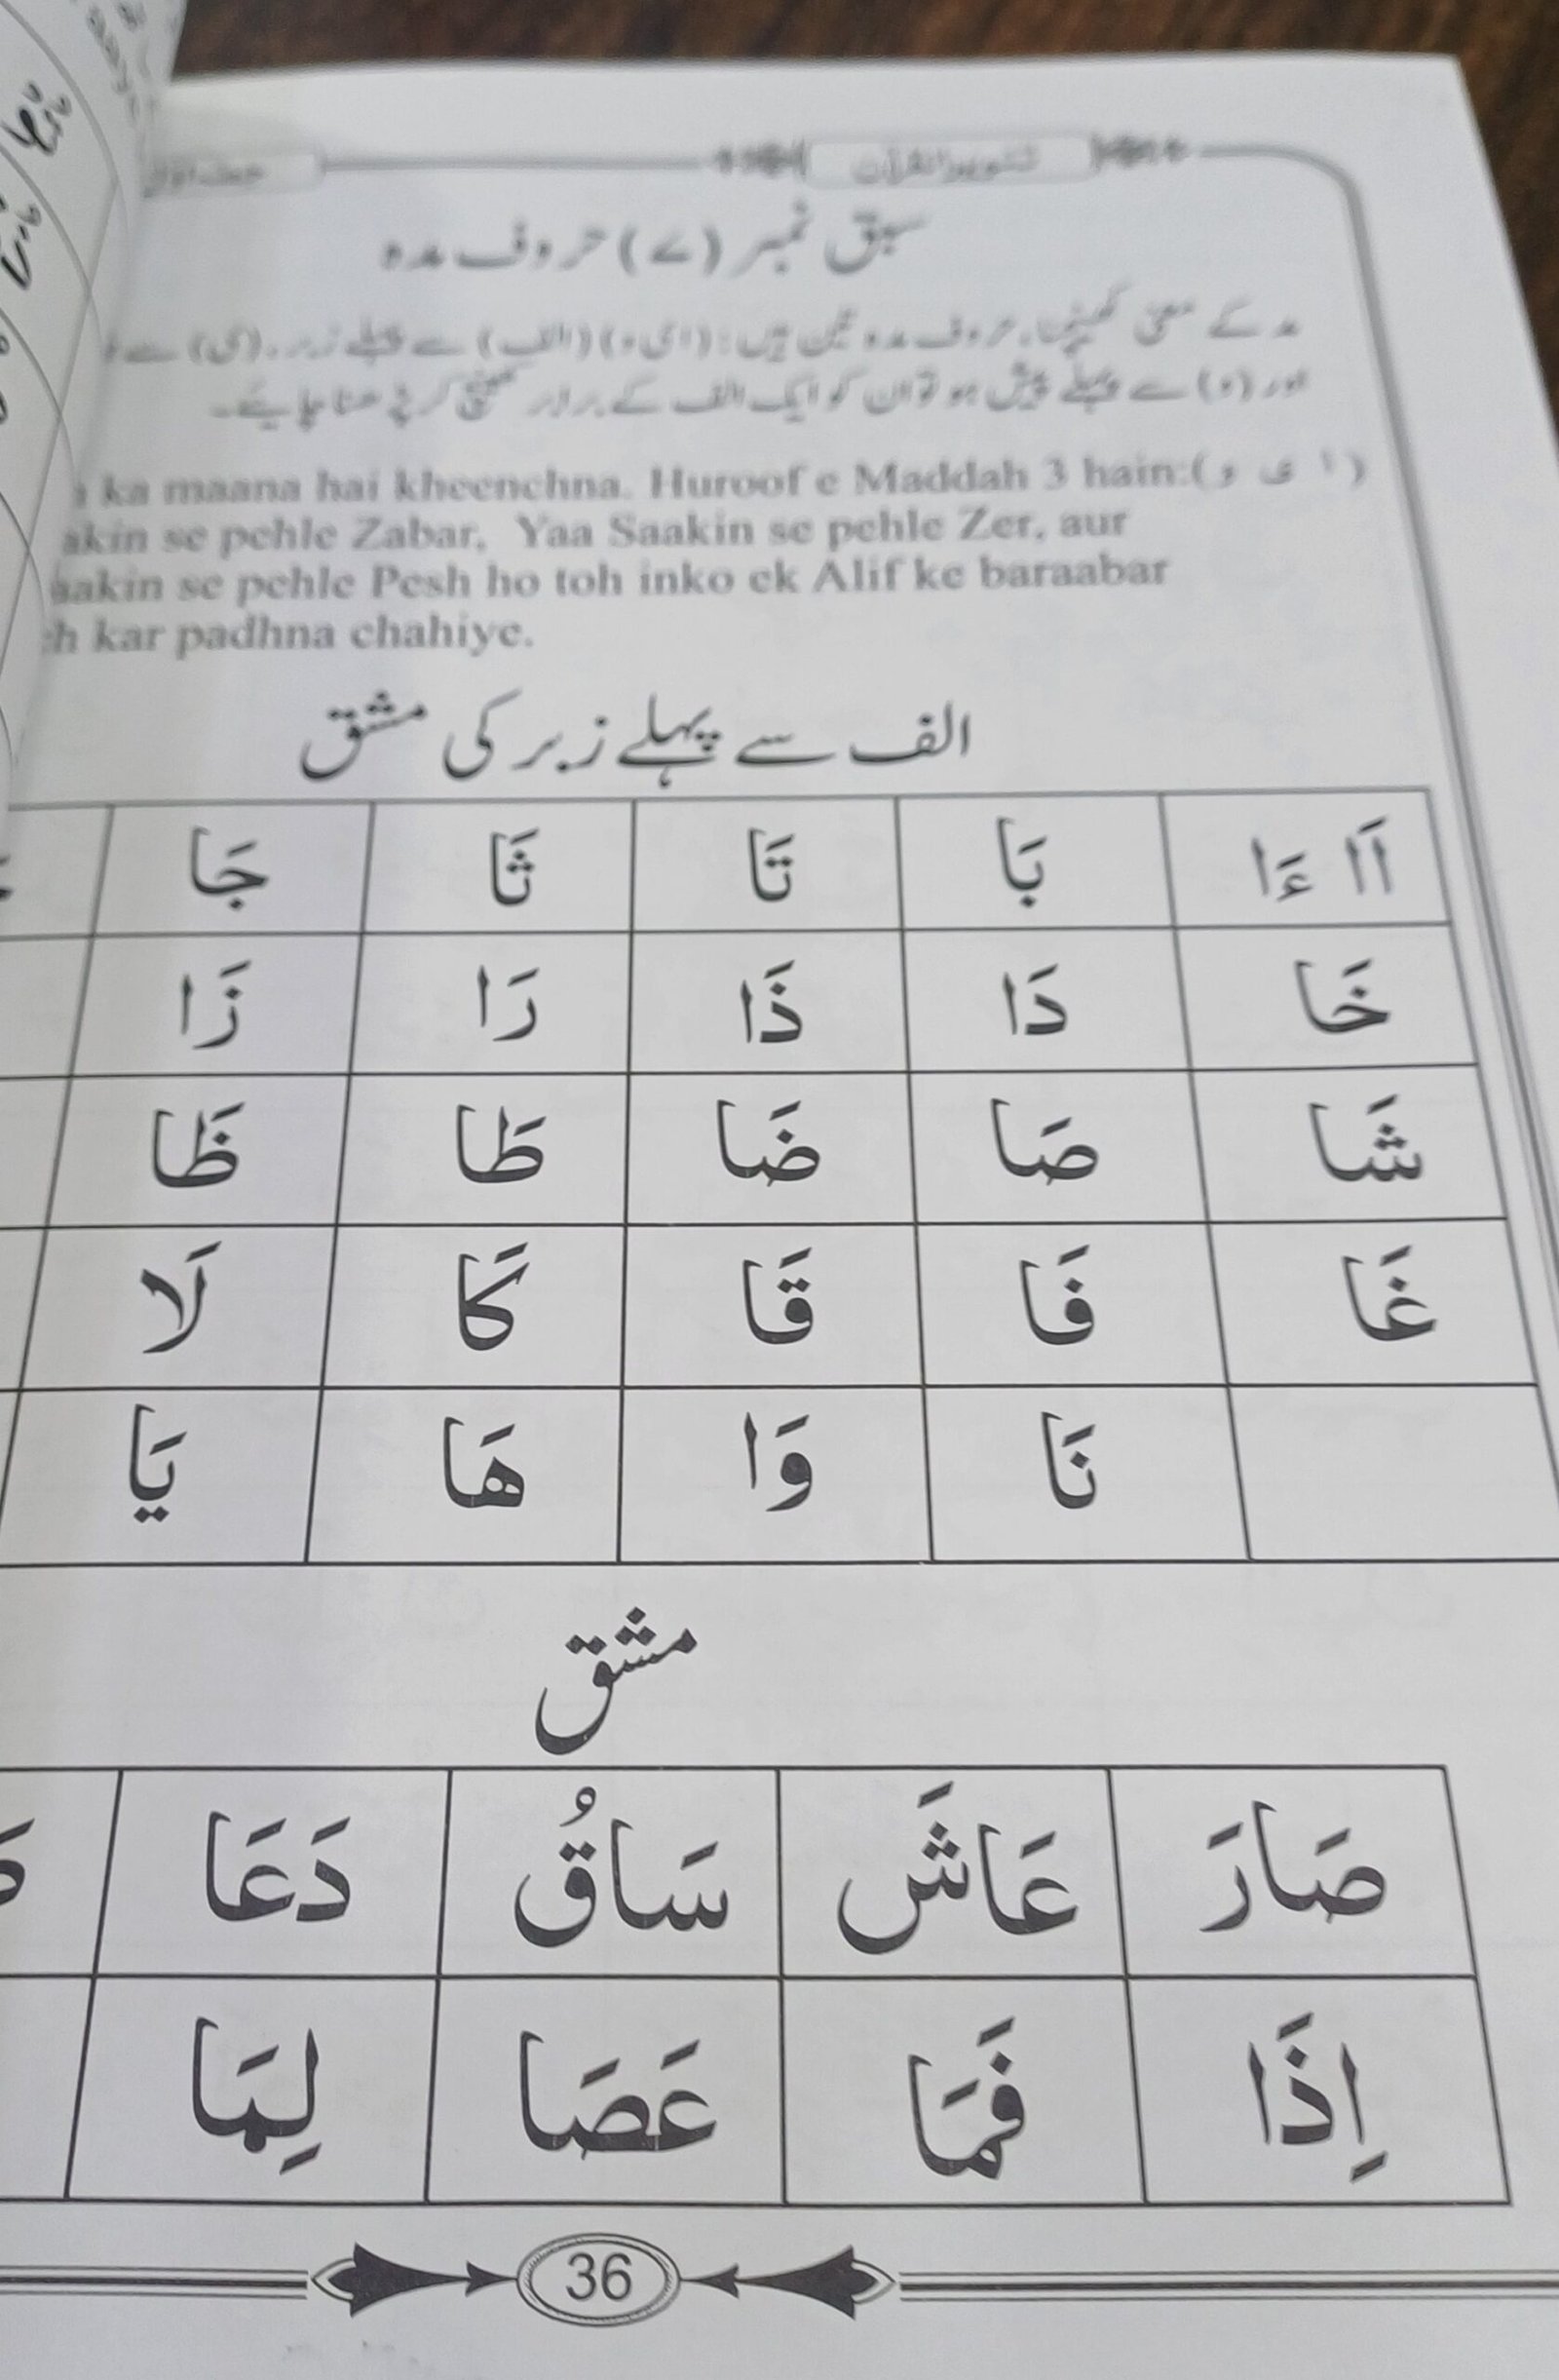 تنویر القرآن
حصہ اول
سبق نمبر (۷) حروف مدہ
مد کے معنی کھینچنا، حروف مدہ تین ہیں: (ا ی و) (الف) سے پہلے زبر، (ی) سے
اور (و) سے پہلے پیش ہو تو ان کو ایک الف کے برابر کھینچ کر پڑھنا چاہیے۔
ka maana hai kheenchna. Huroof e Maddah 3 hain:(ا ی و)
akin se pehle Zabar, Yaa Saakin se pehle Zer, aur
aakin se pehle Pesh ho toh inko ek Alif ke baraabar
h kar padhna chahiye.
الف سے پہلے زبر کی مشق
اَا ءَا بَا تَا ثَا جَا
خَا دَا ذَا رَا زَا
شَا صَا ضَا طَا ظَا
غَا فَا قَا كَا لَا
نَا وَا هَا يَا
مشق
صَارَ عَاشَ سَاقُ دَعَا
اِذَا فَمَا عَصَا لِمَا
36